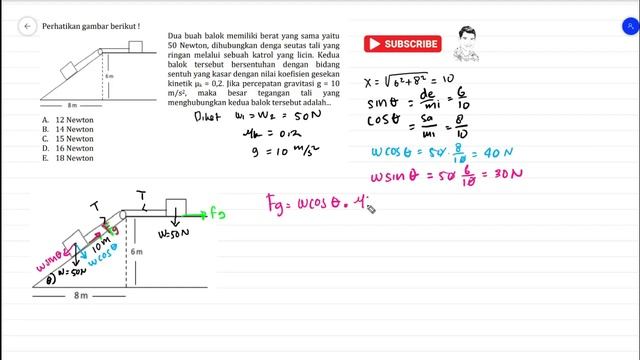 Perhatikan gambar berikut !
6 m
8 m
Dua buah balok memiliki berat yang sama yaitu
50 Newton, dihubungkan denga seutas tali yang
ringan melalui sebuah katrol yang licin. Kedua
balok tersebut bersentuhan dengan bidang
sentuh yang kasar dengan nilai koefisien gesekan
kinetik μₖ = 0,2. Jika percepatan gravitasi g = 10
m/s², maka besar tegangan tali yang
menghubungkan kedua balok tersebut adalah...
A. 12 Newton
B. 14 Newton
C. 15 Newton
D. 16 Newton
E. 18 Newton
Diket w₁ = w₂ = 50 N
μk = 0,2
g = 10 m/s²
SUBSCRIBE
x = √6² + 8² = 10
sin θ = de/mi = 6/10
cos θ = sa/mi = 8/10
w cos θ = 50 . 8/10 = 40 N
w sin θ = 50 6/10 = 30 N
Fg = w cos θ . μ
T
T
Fg
Fg
w sin θ
10 m
w cos θ
w = 50 N
W = 50 N
θ
6 m
8 m